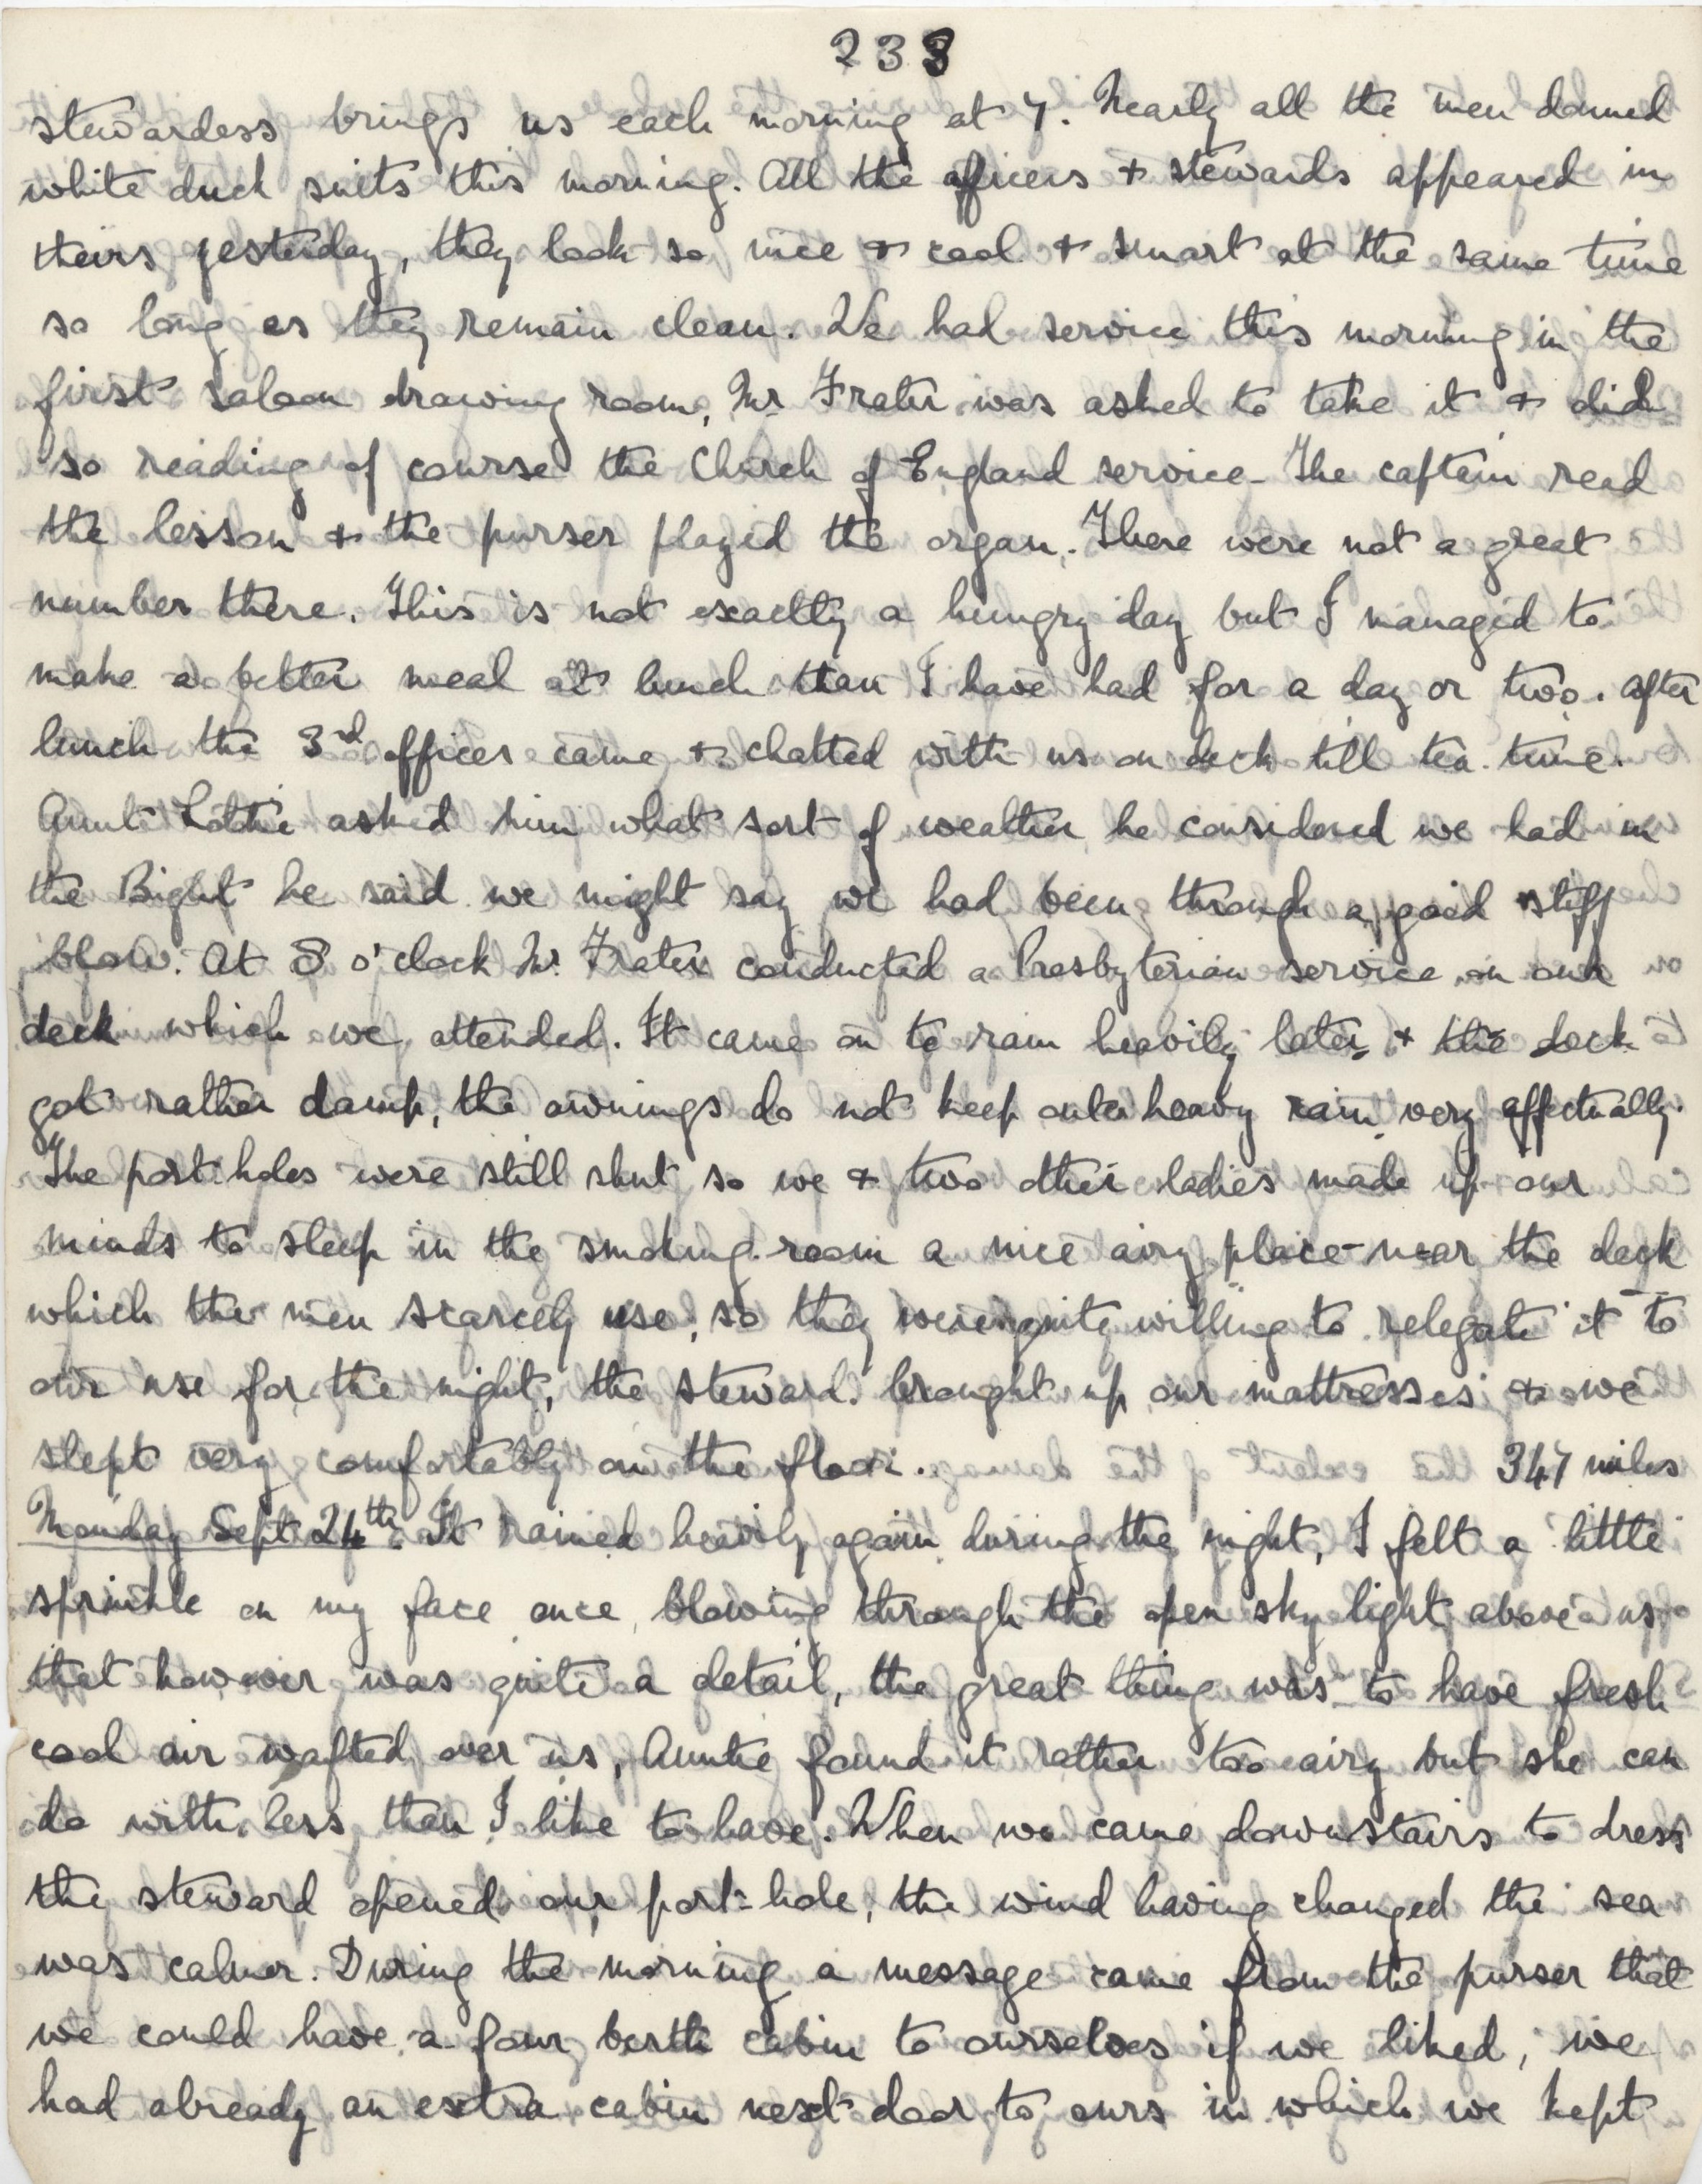 233
stewardess brings us each morning at 7. Nearly all the men donned
white duck suits this morning. All the officers + stewards appeared in
theirs yesterday, they look so nice + cool + smart at the same time
so long as they remain clean. We had service this morning in the
first saloon drawing room, Mr Frater was asked to take it + did
so reading of course the Church of England service. The captain read
the lesson + the purser played the organ. There were not a great
number there. This is not exactly a hungry day but I managed to
make a better meal at lunch than I have had for a day or two. After
lunch the 3rd officer came + chatted with us on deck till tea time.
Aunt Lottie asked him what sort of weather he considered we had in
the Bight he said we might say we had been through a good stiff
blow. At 8 o'clock Mr. Frater conducted a Presbyterian service on our
deck which we attended. It came on to rain heavily later, + the deck
got rather damp, the awnings do not keep out heavy rain very affectually.
The port holes were still shut so we + two other ladies made up our
minds to sleep in the smoking-room a nice airy place near the deck
which the men scarcely use, so they were quite willing to relegate it to
our use for the night, the steward brought up our mattresses + we
slept very comfortably on the floor. 347 miles
Monday Sept 24th. It rained heavily again during the night, I felt a little
sprinkle on my face once, blowing through the open sky light above us
that however was quite a detail, the great thing was to have fresh
cool air wafted over us, Auntie found it rather too airy but she can
do with less than I like to have. When we came downstairs to dress
the steward opened our port-hole, the wind having changed the sea
was calmer. During the morning a message came from the purser that
we could have a four berth cabin to ourselves if we liked, we
had already an extra cabin next door to ours in which we kept